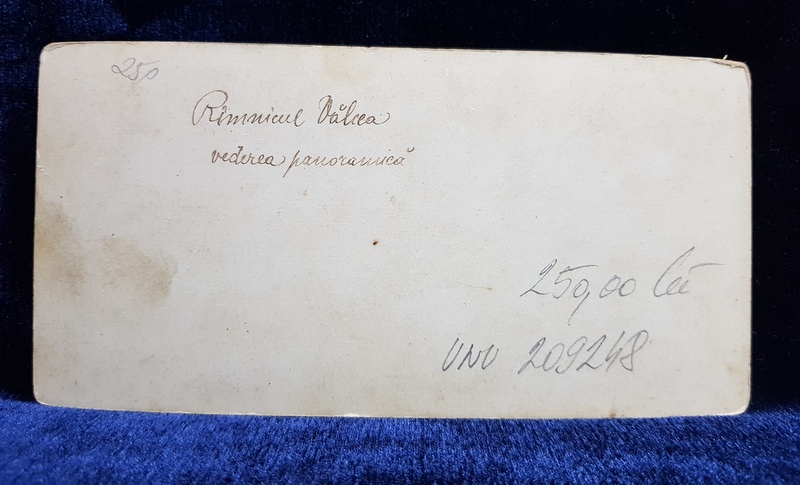 250
Rîmnicul Vâlcea
vederea panoramică
250,00 lei
UNU 209248